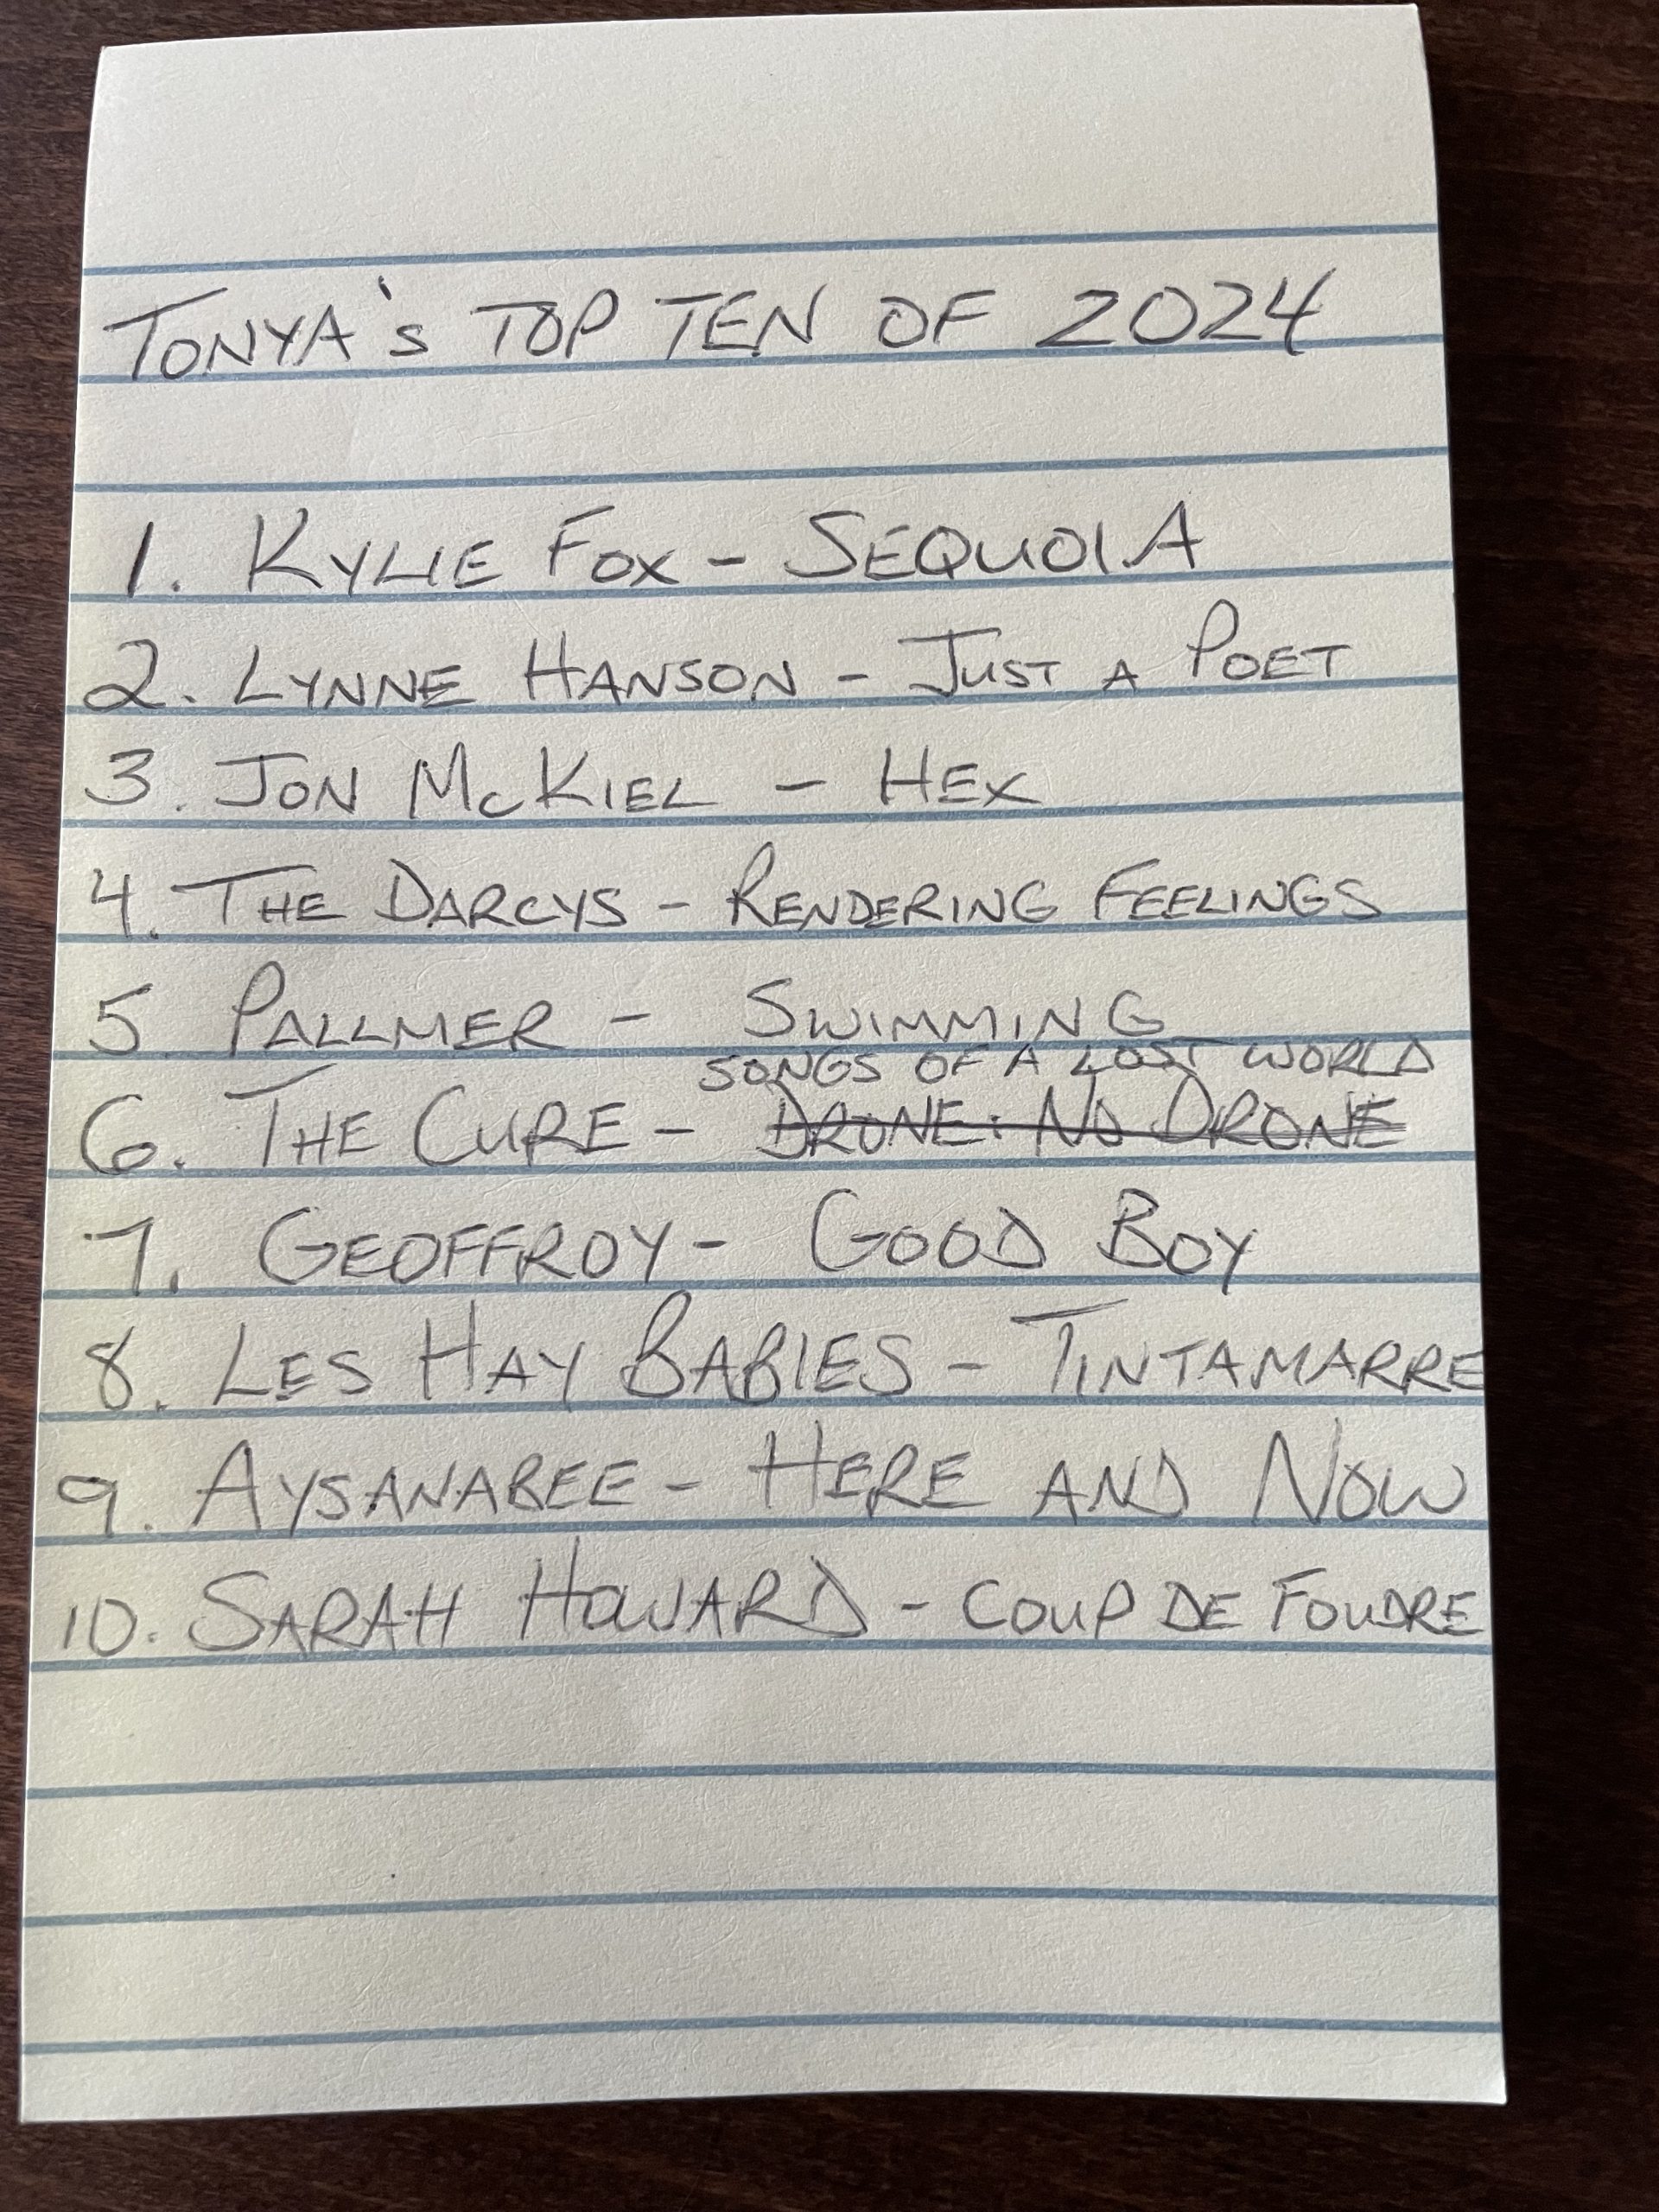 TONYA's TOP TEN OF 2024
1. KYLIE FOX - SEQUOIA
2. LYNNE HANSON - JUST A POET
3. JON McKIEL - HEX
4. THE DARCYS - RENDERING FEELINGS
5 PALLMER - SWIMMING
SONGS OF A LOST WORLD
6. THE CURE - DRONE: NO DRONE
7. GEOFFROY - GOOD BOY
8. LES HAY BABIES - TINTAMARRE
9. AYSANABEE - HERE AND NOW
10. SARAH HOWARD - COUP DE FOUDRE